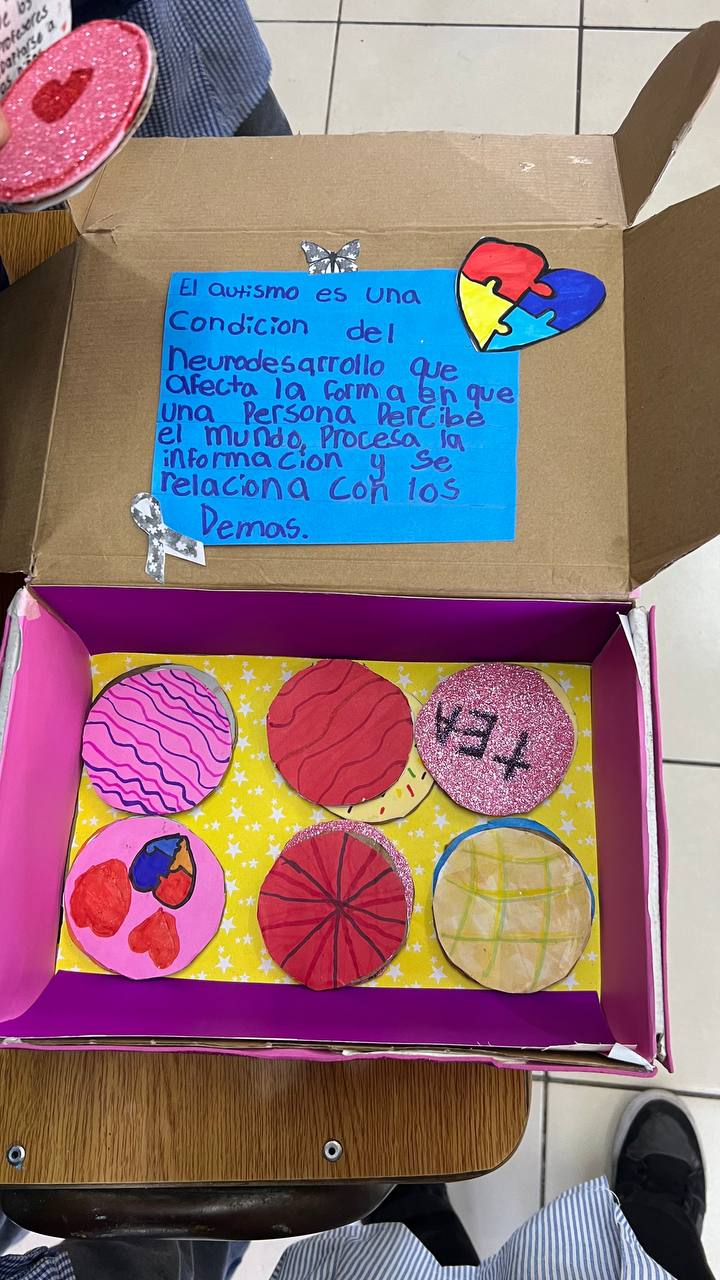 de los
Profesores
El autismo es una
Condicion del
neurodesarrollo que
afecta la forma en que
una Persona Percibe
el mundo, Procesa la
informacion y se
relaciona con los
Demas.
TEA